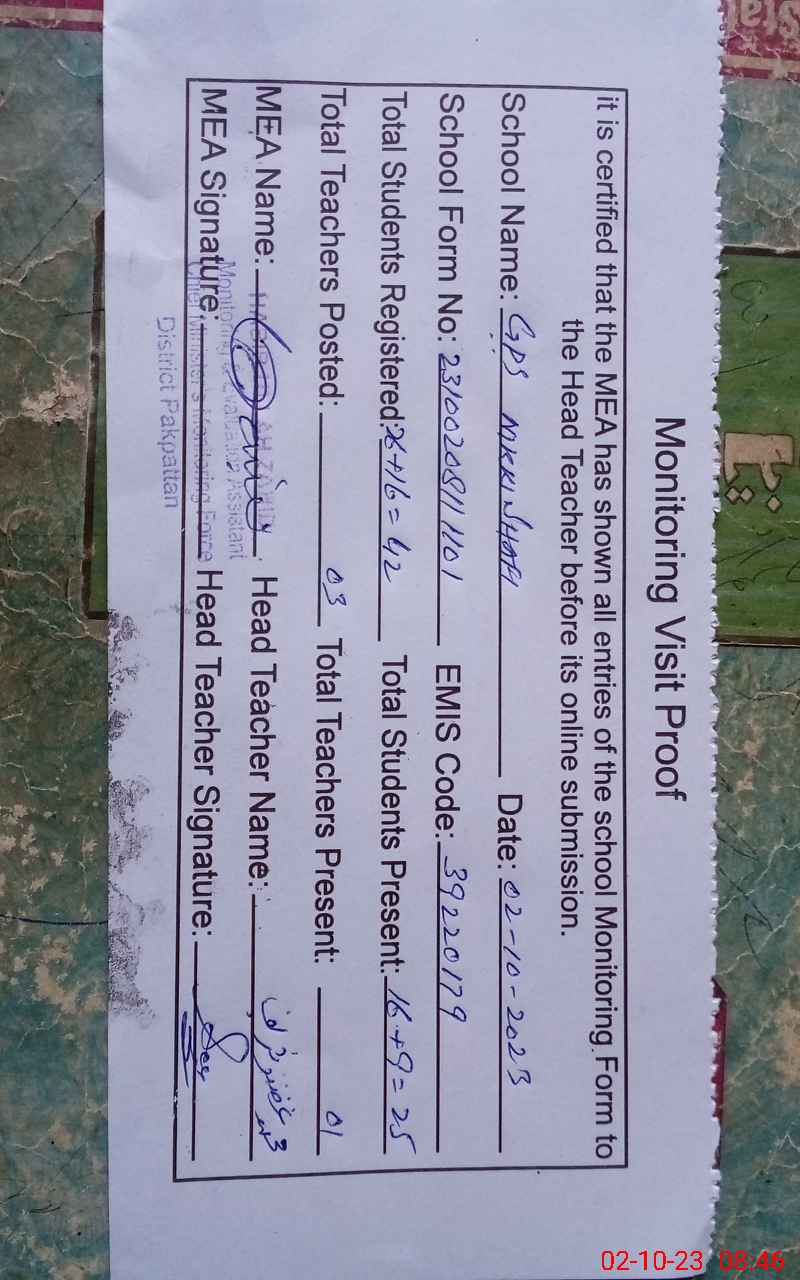 Monitoring Visit Proof
it is certified that the MEA has shown all entries of the school Monitoring Form to
the Head Teacher before its online submission.
School Name: GPS Date: 02-10-2023
School Form No: EMIS Code: 39220179
Total Students Registered: 26+16=42 Total Students Present: 16+9=25
Total Teachers Posted: 03 Total Teachers Present: 01
MEA Name: Head Teacher Name:
Monitoring & Evaluating Assistant
MEA Signature: Head Teacher Signature:
Chief Minister's Monitoring Force
District Pakpattan
02-10-23 08:46